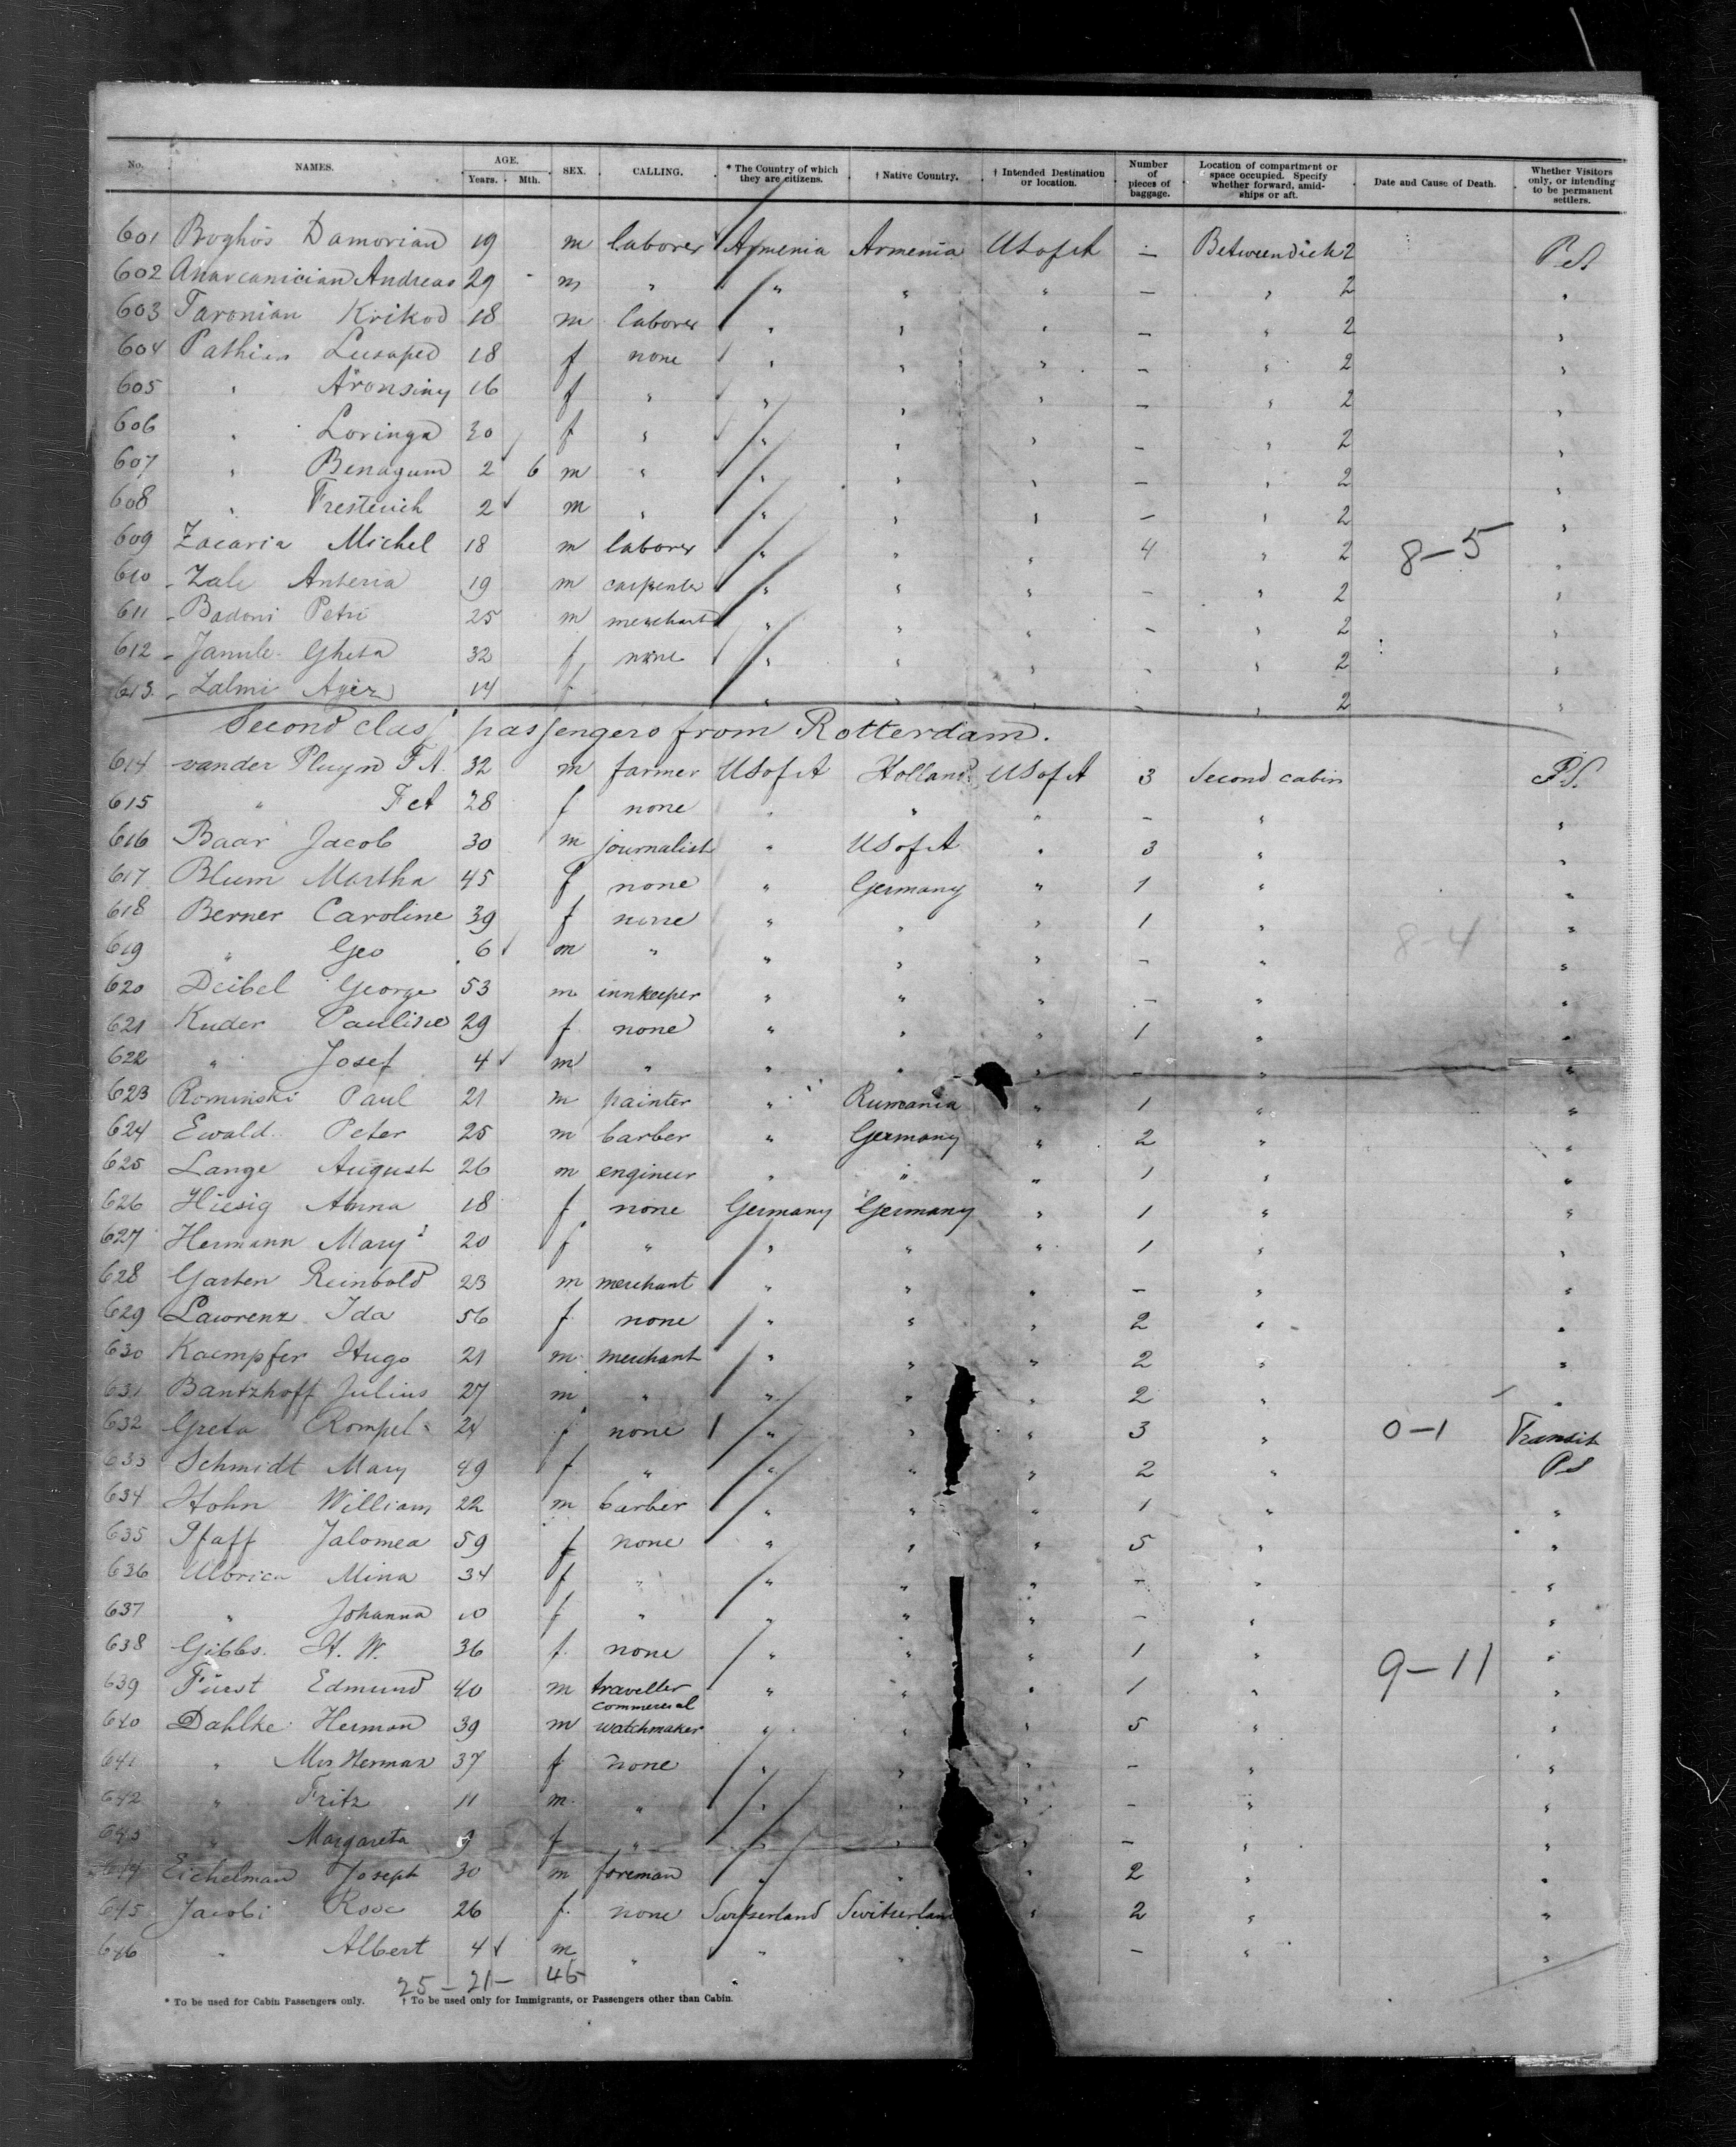 No. NAMES. AGE. Years. Mth. SEX. CALLING. * The Country of which they are citizens. † Native Country. † Intended Destination or location. Number of pieces of baggage. Location of compartment or space occupied. Specify whether forward, amidships or aft. Date and Cause of Death. Whether Visitors only, or intending to be permanent settlers.
601 Boghos Damorian 19 m laborer Armenia Armenia US of A — Betweendeck 2
602 Andreas 29 m " " " " — " 2 "
603 Taronian Krikod 18 m laborer " " " — " 2 "
604 Lusaped 18 f none " " " — " 2 "
605 " Aronsiny 16 f " " " " — " 2 "
606 " Loringa 30 f " " " " — " 2 "
607 " Benagum 2 6 m " " " " — " 2 "
608 " 2 m " " " " — " 2 "
609 Zacaria Michel 18 m laborer " " " 4 " 2 8–5 "
610 Zale Anteria 19 m carpenter " " " — " 2 "
611 Badoni Petri 25 m merchant " " " — " 2 "
612 Jamile Gheta 32 f none " " " — " 2 "
613 Zalmi 14 f " " " — " 2 "
Second class passengers from Rotterdam.
614 vander Pluym F A. 32 m farmer US of A Holland US of A 3 Second cabin P.S.
615 " F A 28 f none " " " — " "
616 Baar Jacob 30 m journalist " US of A " 3 " "
617 Blum Martha 45 f none " Germany " 1 " "
618 Berner Caroline 39 f none " " " 1 " "
619 " Geo 6 m " " " " — " 8–4 "
620 Deibel George 53 m innkeeper " " " — " "
621 Kuder Pauline 29 f none " " " 1 " "
622 " Josef 4 m " " " " — " "
623 Rominski Paul 21 m painter " Rumania " 1 " "
624 Ewald Peter 25 m barber " Germany " 2 " "
625 Lange August 26 m engineer " " " 1 " "
626 Hiesig Anna 18 f none Germany Germany " 1 " "
627 Hermann Mary 20 f " " " " 1 " "
628 Garten Reinbold 23 m merchant " " " — " "
629 Lawrenz Ida 56 f none " " " 2 " "
630 Kaempfer Hugo 21 m merchant " " " 2 " "
631 Bantzhoff Julius 27 m " " " " 2 " "
632 Greta Rompel 24 f none " " " 3 " 0–1 Transit
633 Schmidt Mary 49 f " " " " 2 " PS
634 Hohn William 22 m barber " " " 1 " "
635 Pfaff Jalomea 59 f none " " " 5 " "
636 Mina 34 f " " " " — " "
637 " Johanna 10 f " " " " — " "
638 Gibbs. H. W. 36 f. none " " " 1 " "
639 Fürst Edmund 40 m traveller commercial " " " 1 " 9–11 "
640 Dahlke Herman 39 m watchmaker " " " 5 " "
641 " Mrs Herman 37 f none " " — " "
642 " Fritz 11 m. " " " " — " "
643 " Margareta 9 f " " " — " "
644 Eichelman Joseph 30 m foreman " " " 2 " "
645 Jacobi Rose 26 f. none Switserland Switserland " 2 " "
646 " Albert 4 m " " " — " "
25 – 21 – 46
* To be used for Cabin Passengers only. † To be used only for Immigrants, or Passengers other than Cabin.